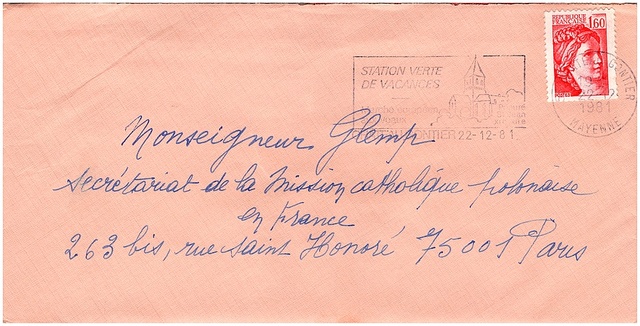 REPUBLIQUE
FRANÇAISE 1,60
STATION VERTE
DE VACANCES
GONTIER 22-12-81
GONTIER
1981
MAYENNE
Monseigneur Glemp
secrétariat de la Mission catholique polonaise
en France
263 bis, rue Saint Honoré 75001 Paris